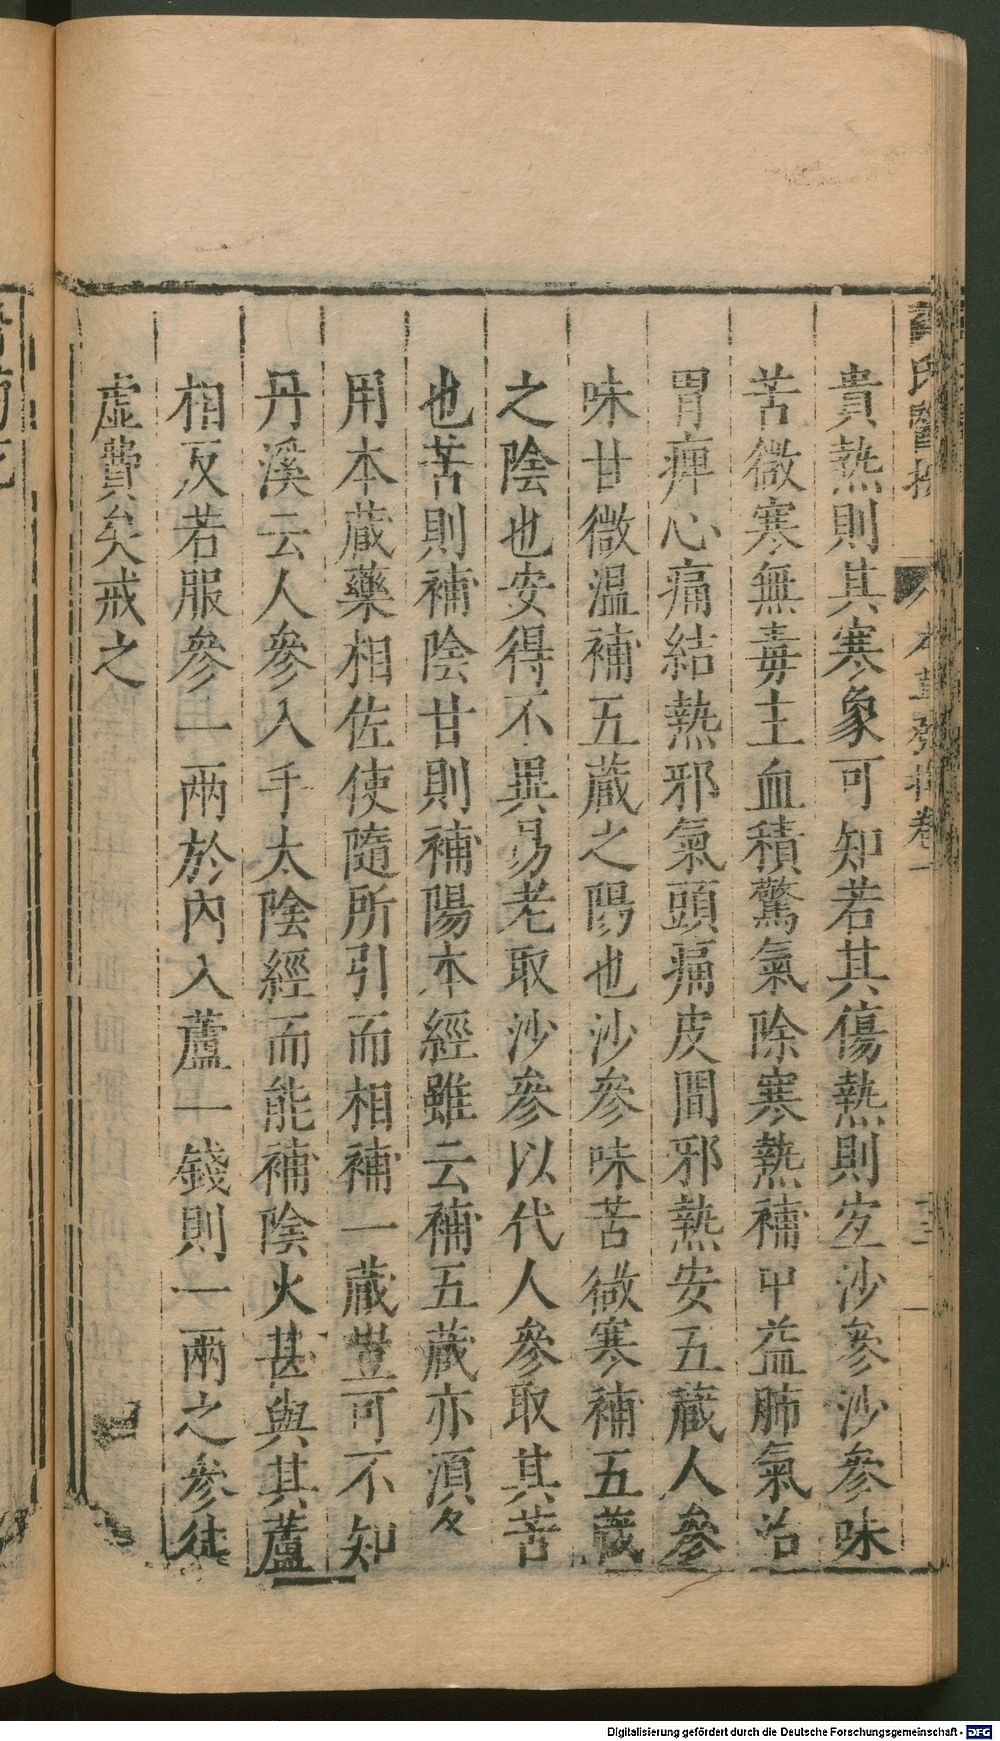 貴熱則其寒象可知若其傷熱則宜沙參沙參味
苦微寒無毒主血積驚氣除寒熱補中益肺氣治
胃痺心痛結熱邪氣頭痛皮間邪熱安五蔵人參
味甘微温補五蔵之陽也沙參味苦微寒補五蔵
之陰也安得不異易老取沙參以代人參取其苦
也苦則補陰甘則補陽本經雖云補五蔵亦湏各
用本蔵藥相佐使隨所引而相補一蔵豈可不知
丹溪云人參入手太陰經而能補陰火甚與其蘆
相反若服參一兩於內入蘆一錢則一兩之參徒
虚費矣戒之
氏醫按
本草發揮卷一
十三
Digitalisierung gefördert durch die Deutsche Forschungsgemeinschaft - DFG